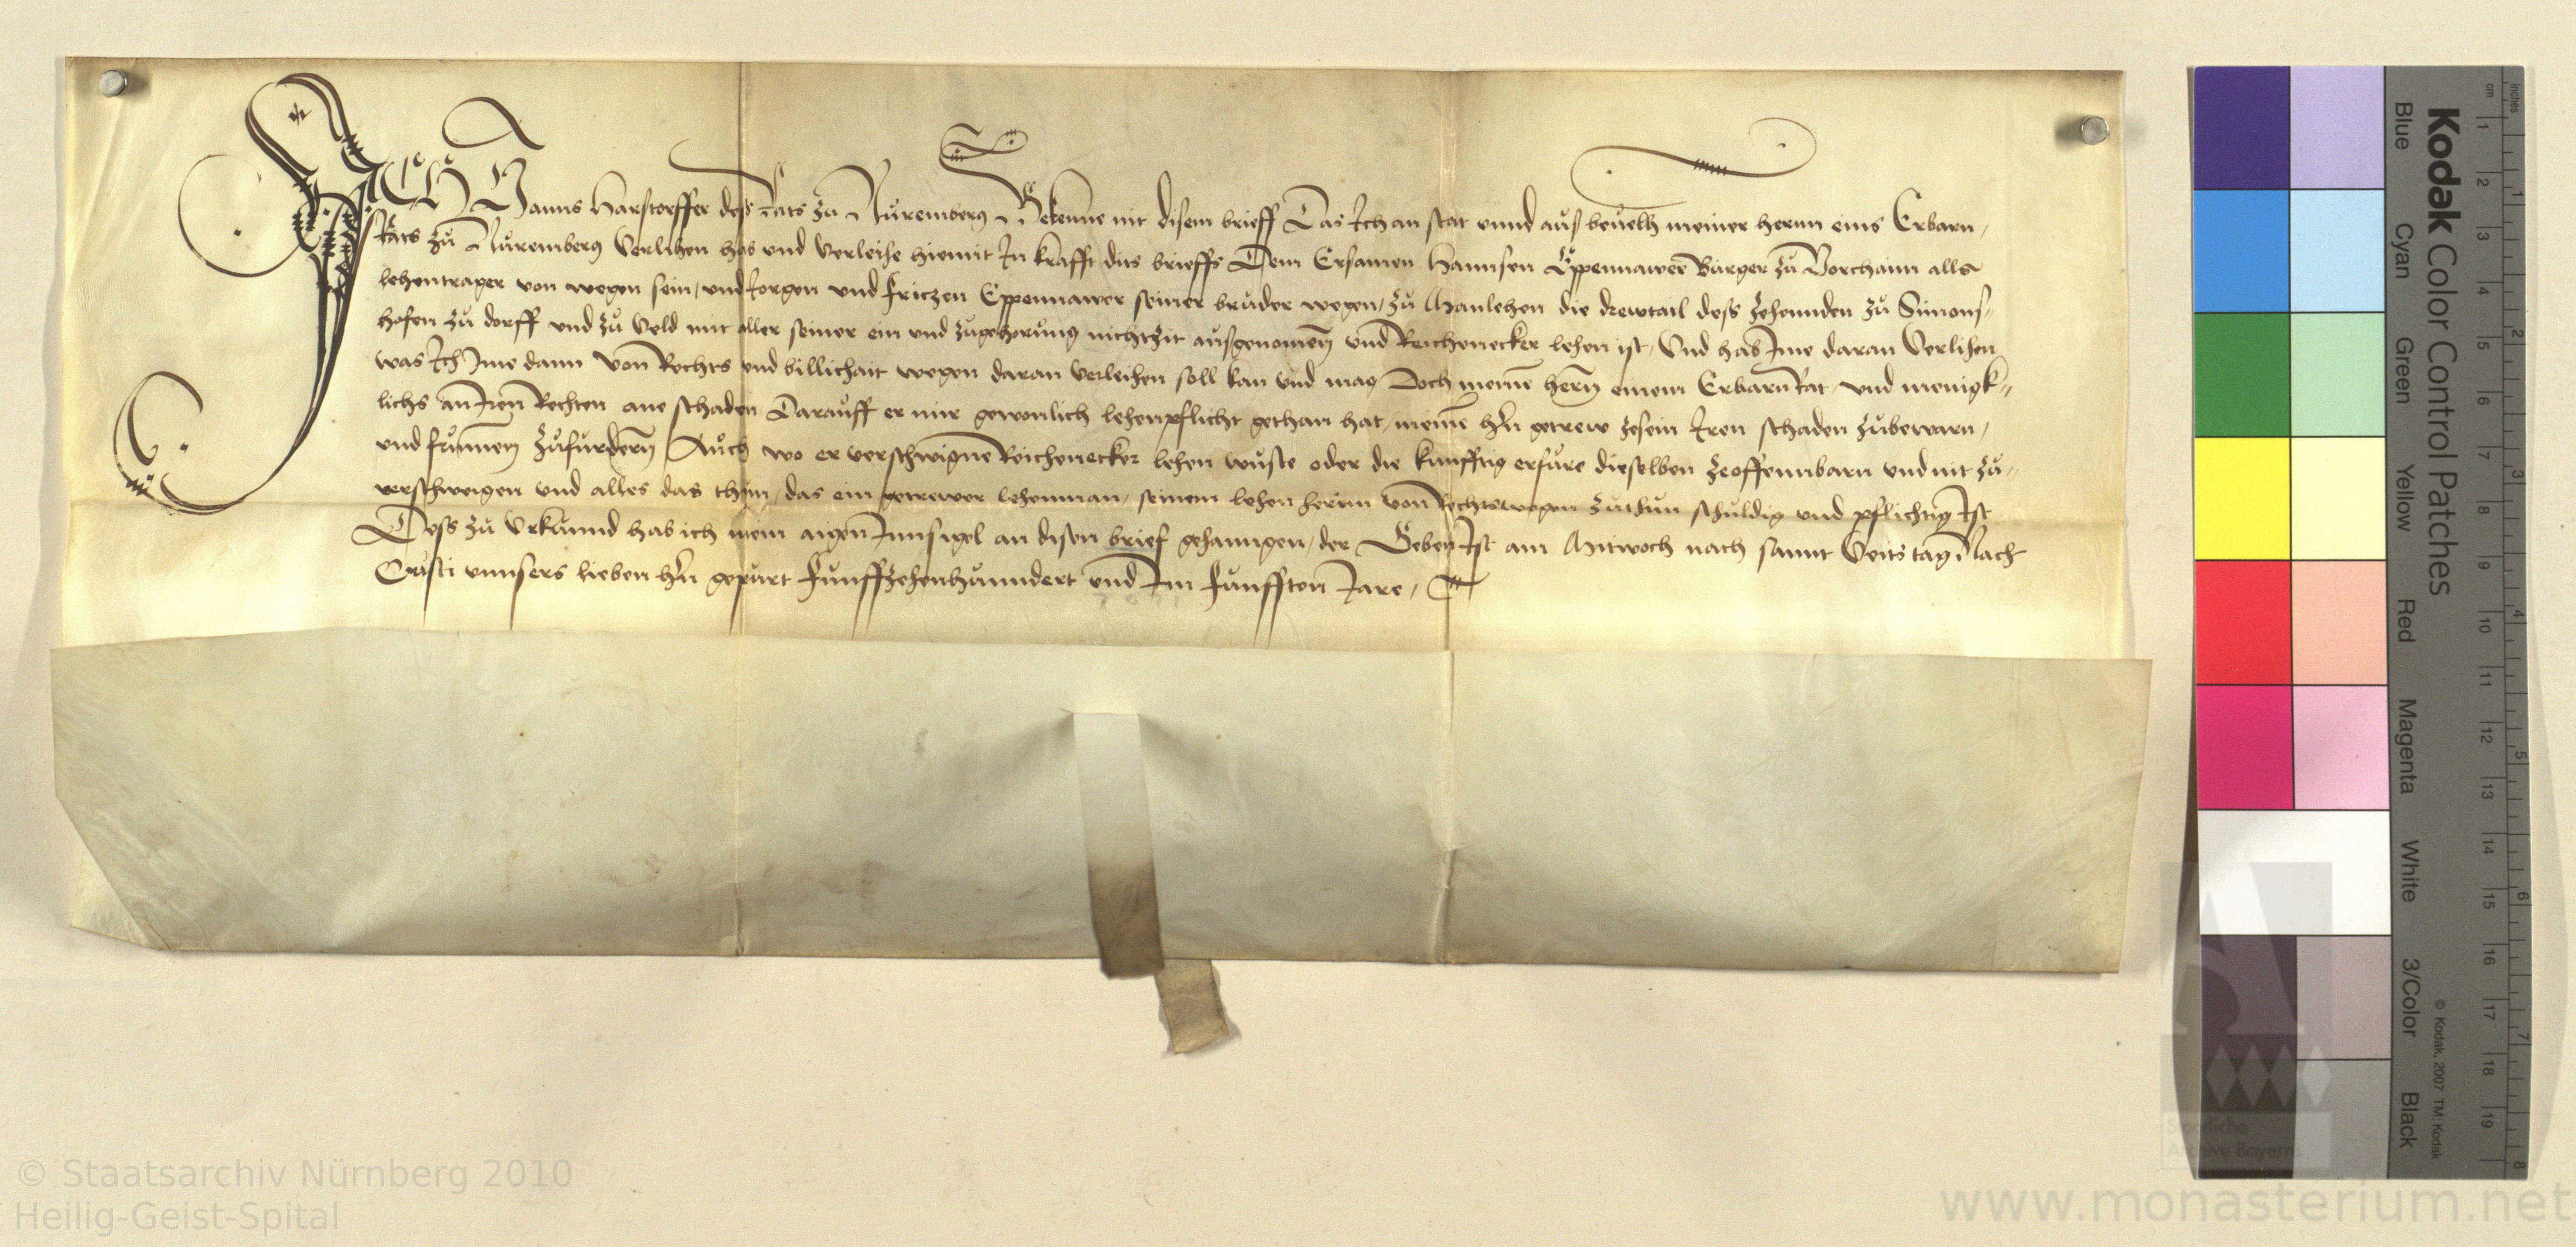 ICH Hanns Harstorffer dess Rats zů Nůremberg Bekenne mit disem brieff Das Ich an stat unnd auß bevelh meiner herrnn eins Erbarn,
Rats zů Nůremberg Verlihen hab und Verleihe hiemit In krafft dits brieffs Dem Ersamen Hannsen Eppennawer Bůrger zů Vorchaim alls
lehentrager von wegen sein, und Jorgen und Friczen Eppennawer seiner brůder wegen, zů Manlehen die drewtail dess zehennden zů Simons-
hofen zů dorff und zů Veld mit aller seiner ein und zůgehorůng nichtzit außgenomen und Reichenecker lehen ist, Und hab Ime daran Verlihen
was Ich Ime dann Von Rechts und billichait wegen daran Verleihen soll kan und mag Doch meinen hern einem Erbarn Rat und menigk-
lichs an Iren Rechten ane schaden Darauff er mir gewonlich lehenpflicht gethan hat, meinen hern getrew zesein Iren schaden zůbewarn,
und frůmen zůfůrdern Aůch wo er verschwigne Reichenecker lehen wůste oder die kunfftig erfůre dieselben zeoffennbarn und nit zů-
verschweigen und alles das thůn, das ein getrewer lehenman, seinem lehen herrnn von Rechtswegen zůthun schuldig und pflichtig Ist
Dess zů Urkůnnd hab ich mein aigen Innsigel an disen brief gehanngen, der Geben Ist am Mitwoch nach sannt Veits tag Nach
Cristi unnsers lieben hern gepurt Fůnffzehenhůnndert und Im Fůnfften Jare,
Kodak Color Control Patches
© Kodak, 2007 TM: Kodak
Blue Cyan Green Yellow Red Magenta White 3/Color Black
cm 1 2 3 4 5 6 7 8 9 10 11 12 13 14 15 16 17 18 19
inches 1 2 3 4 5 6 7 8
Staatliche
Archive Bayerns
© Staatsarchiv Nürnberg 2010
Heilig-Geist-Spital
www.monasterium.net